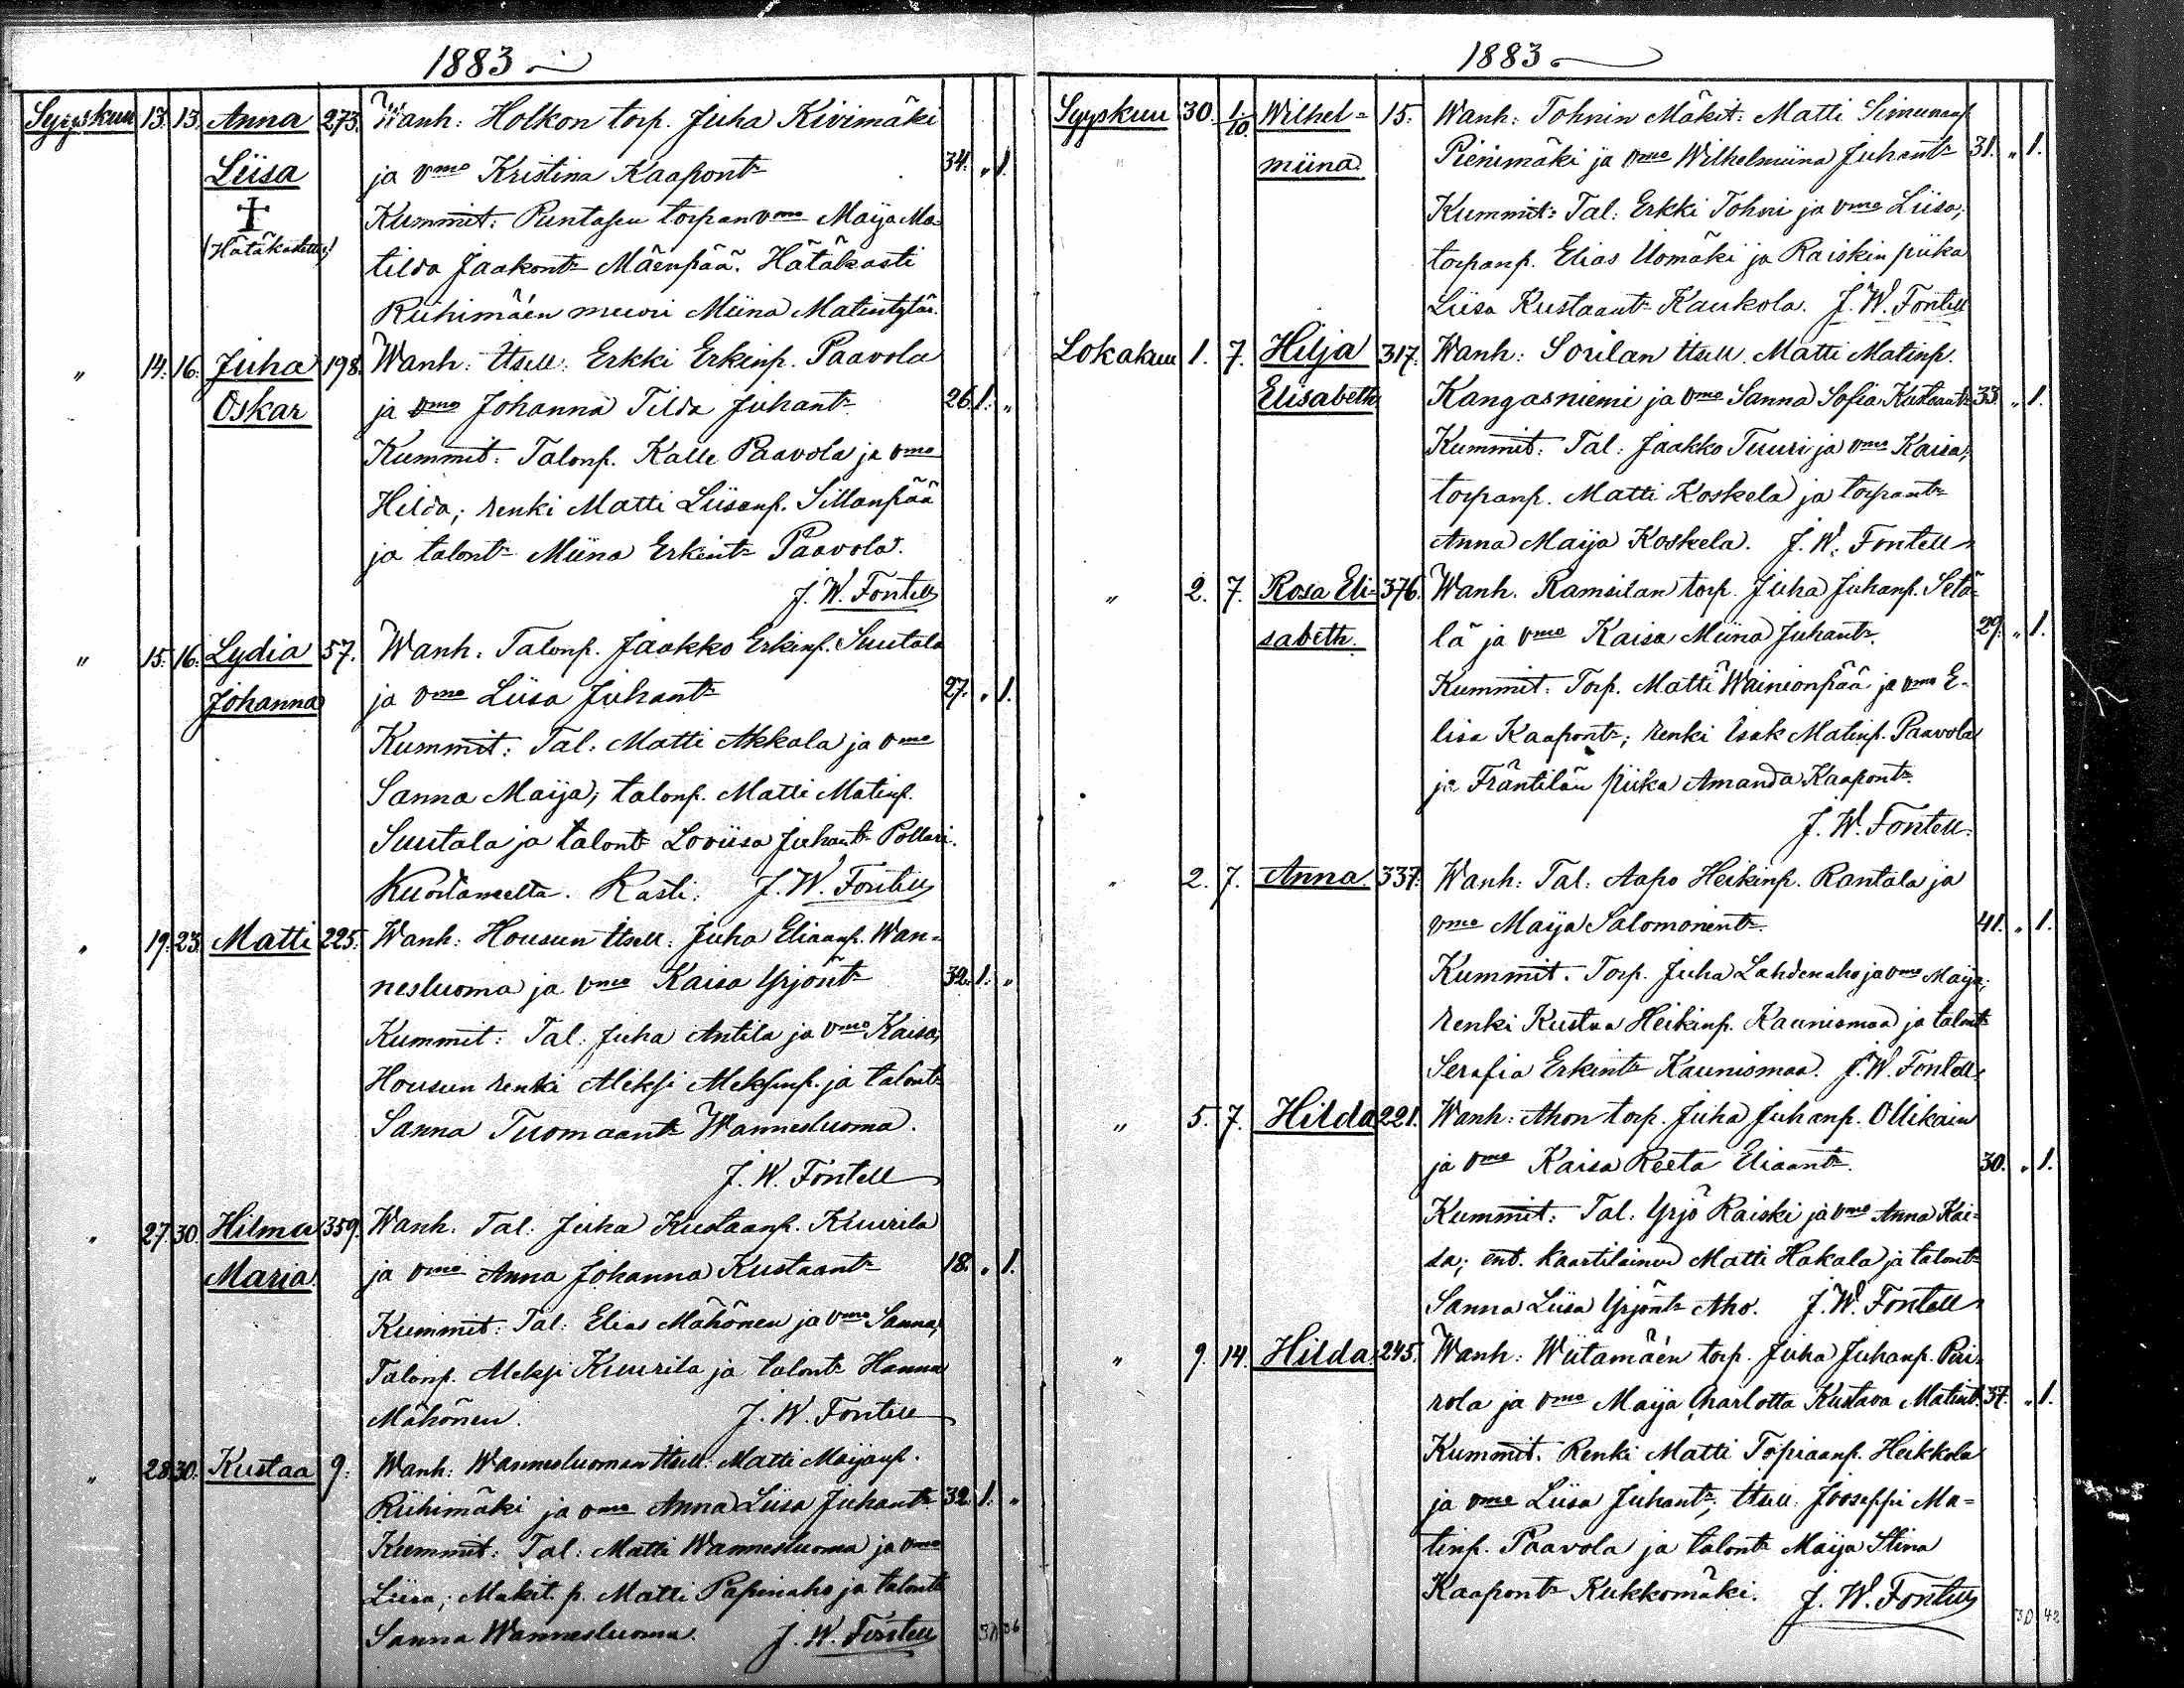 1883
Syyskuu 13. 13. Anna 273. Wanh: Holkon torp. Juha Kivimäki
Liisa ja vmo Kristina Kaapont. 34. „ 1.
Kummit: Puntasen torpan vmo Maija Ma-
(Hätäkastettu) tilda Jaakont. Mäenpää. Hätäkasti
Riihimäen muori Miina Matintytär.
„ 14. 16. Juha 198. Wanh: Itsell: Erkki Erkinp. Paavola
Oskar ja vmo Johanna Tilda Juhant. 26. 1. „
Kummit: Talonp. Kalle Paavola ja vmo
Hilda; renki Matti Liisanp. Sillanpää
ja talont. Miina Erkint. Paavola.
J. W. Fontell
„ 15. 16. Lydia 57. Wanh: Talonp. Jaakko Erkinp. Suutala
Johanna ja vmo Liisa Juhant. 27. „ 1.
Kummit: Tal: Matti Akkala ja vmo
Sanna Maija; talonp. Matti Matinp.
Suutala ja talont. Loviisa Juhant. Pollari.
Kuortaneelta. Kasti: J. W. Fontell
„ 19. 23. Matti 225. Wanh: Housun Itsell: Juha Eliaanp. Wan-
nesluoma ja vmo Kaisa Yrjönt. 32. 1. „
Kummit: Tal: Juha Antila ja vmo Kaisa;
Housun renki Aleksi Aleksinp. ja talont.
Sanna Tuomaant. Wannesluoma.
J. W. Fontell
„ 27. 30. Hilma 359. Wanh. Tal. Juha Kustaanp. Kuurila
Maria. ja vmo Anna Johanna Kustaant. 18. „ 1.
Kummit: Tal: Elias Mähönen ja vmo Sanna;
Talonp. Aleksi Kuurila ja talont. Hanna
Mähönen. J. W. Fontell
„ 28. 30. Kustaa 9. Wanh: Wannesluoman Itsell: Matti Maijanp.
Riihimäki ja vmo Anna Liisa Juhant. 32. 1. „
Kummit: Tal: Matti Wannesluoma ja vmo
Liisa; Mäkit. p. Matti Papinaho ja talont.
Sanna Wannesluoma. J. W. Fontell 36
1883
Syyskuu 30. 1/10 Wilhel- 15. Wanh: Tohnin Mäkit: Matti Simunanp.
miina Pienimäki ja vmo Wilhelmiina Juhant. 31. „ 1.
Kummit: Tal: Erkki Tohni ja vmo Liisa;
torpanp. Elias Uomäki ja Raiskin piika
Liisa Kustaant. Kaukola. J. W. Fontell
Lokakuu 1. 7. Hilja 317. Wanh: Sorilan Itsell. Matti Matinp.
Elisabeth Kangasniemi ja vmo Sanna Sofia Kustaant. 33. „ 1.
Kummit: Tal: Jaakko Tuuri ja vmo Kaisa;
torpanp. Matti Koskela ja torpant.
Anna Maija Koskela. J. W. Fontell
„ 2. 7. Rosa Eli- 376. Wanh. Ramsilan torp. Juha Juhanp. Setä-
sabeth. lä ja vmo Kaisa Miina Juhant. 29. „ 1.
Kummit: Torp. Matti Wainionpää ja vmo E-
lisa Kaapont.; renki Isak Matinp. Paavola
ja Fräntilän piika Amanda Kaapont.
J. W. Fontell.
„ 2. 7. Anna. 337. Wanh: Tal: Aapo Heikinp. Rantala ja
vmo Maija Salomonint. 41. „ 1.
Kummit. Torp. Juha Lahdenaho ja vmo Maija;
renki Kustaa Heikinp. Kaunismaa ja talont.
Serafia Erkint. Kaunismaa. J. W. Fontell
„ 5. 7. Hilda 221. Wanh: Ahon torp. Juha Juhanp. Ollikain
ja vmo Kaisa Reeta Eliaant. 30. „ 1.
Kummit: Tal: Yrjö Raiski ja vmo Anna Kai-
sa; ent. kaartilainen Matti Hakala ja talont.
Sanna Liisa Yrjönt. Aho. J. W. Fontell
„ 9. 14. Hilda 245. Wanh: Wiitamäen torp. Juha Juhanp. Piri-
rola ja vmo Maija Charlotta Kustava Matint. 37. „ 1.
Kummit. Renki Matti Topiaanp. Heikkola
ja vmo Liisa Juhant.; Itsell: Jooseppi Ma-
tinp. Paavola ja talont. Maija Stina
Kaapont. Kukkomäki. J. W. Fontell 30 42